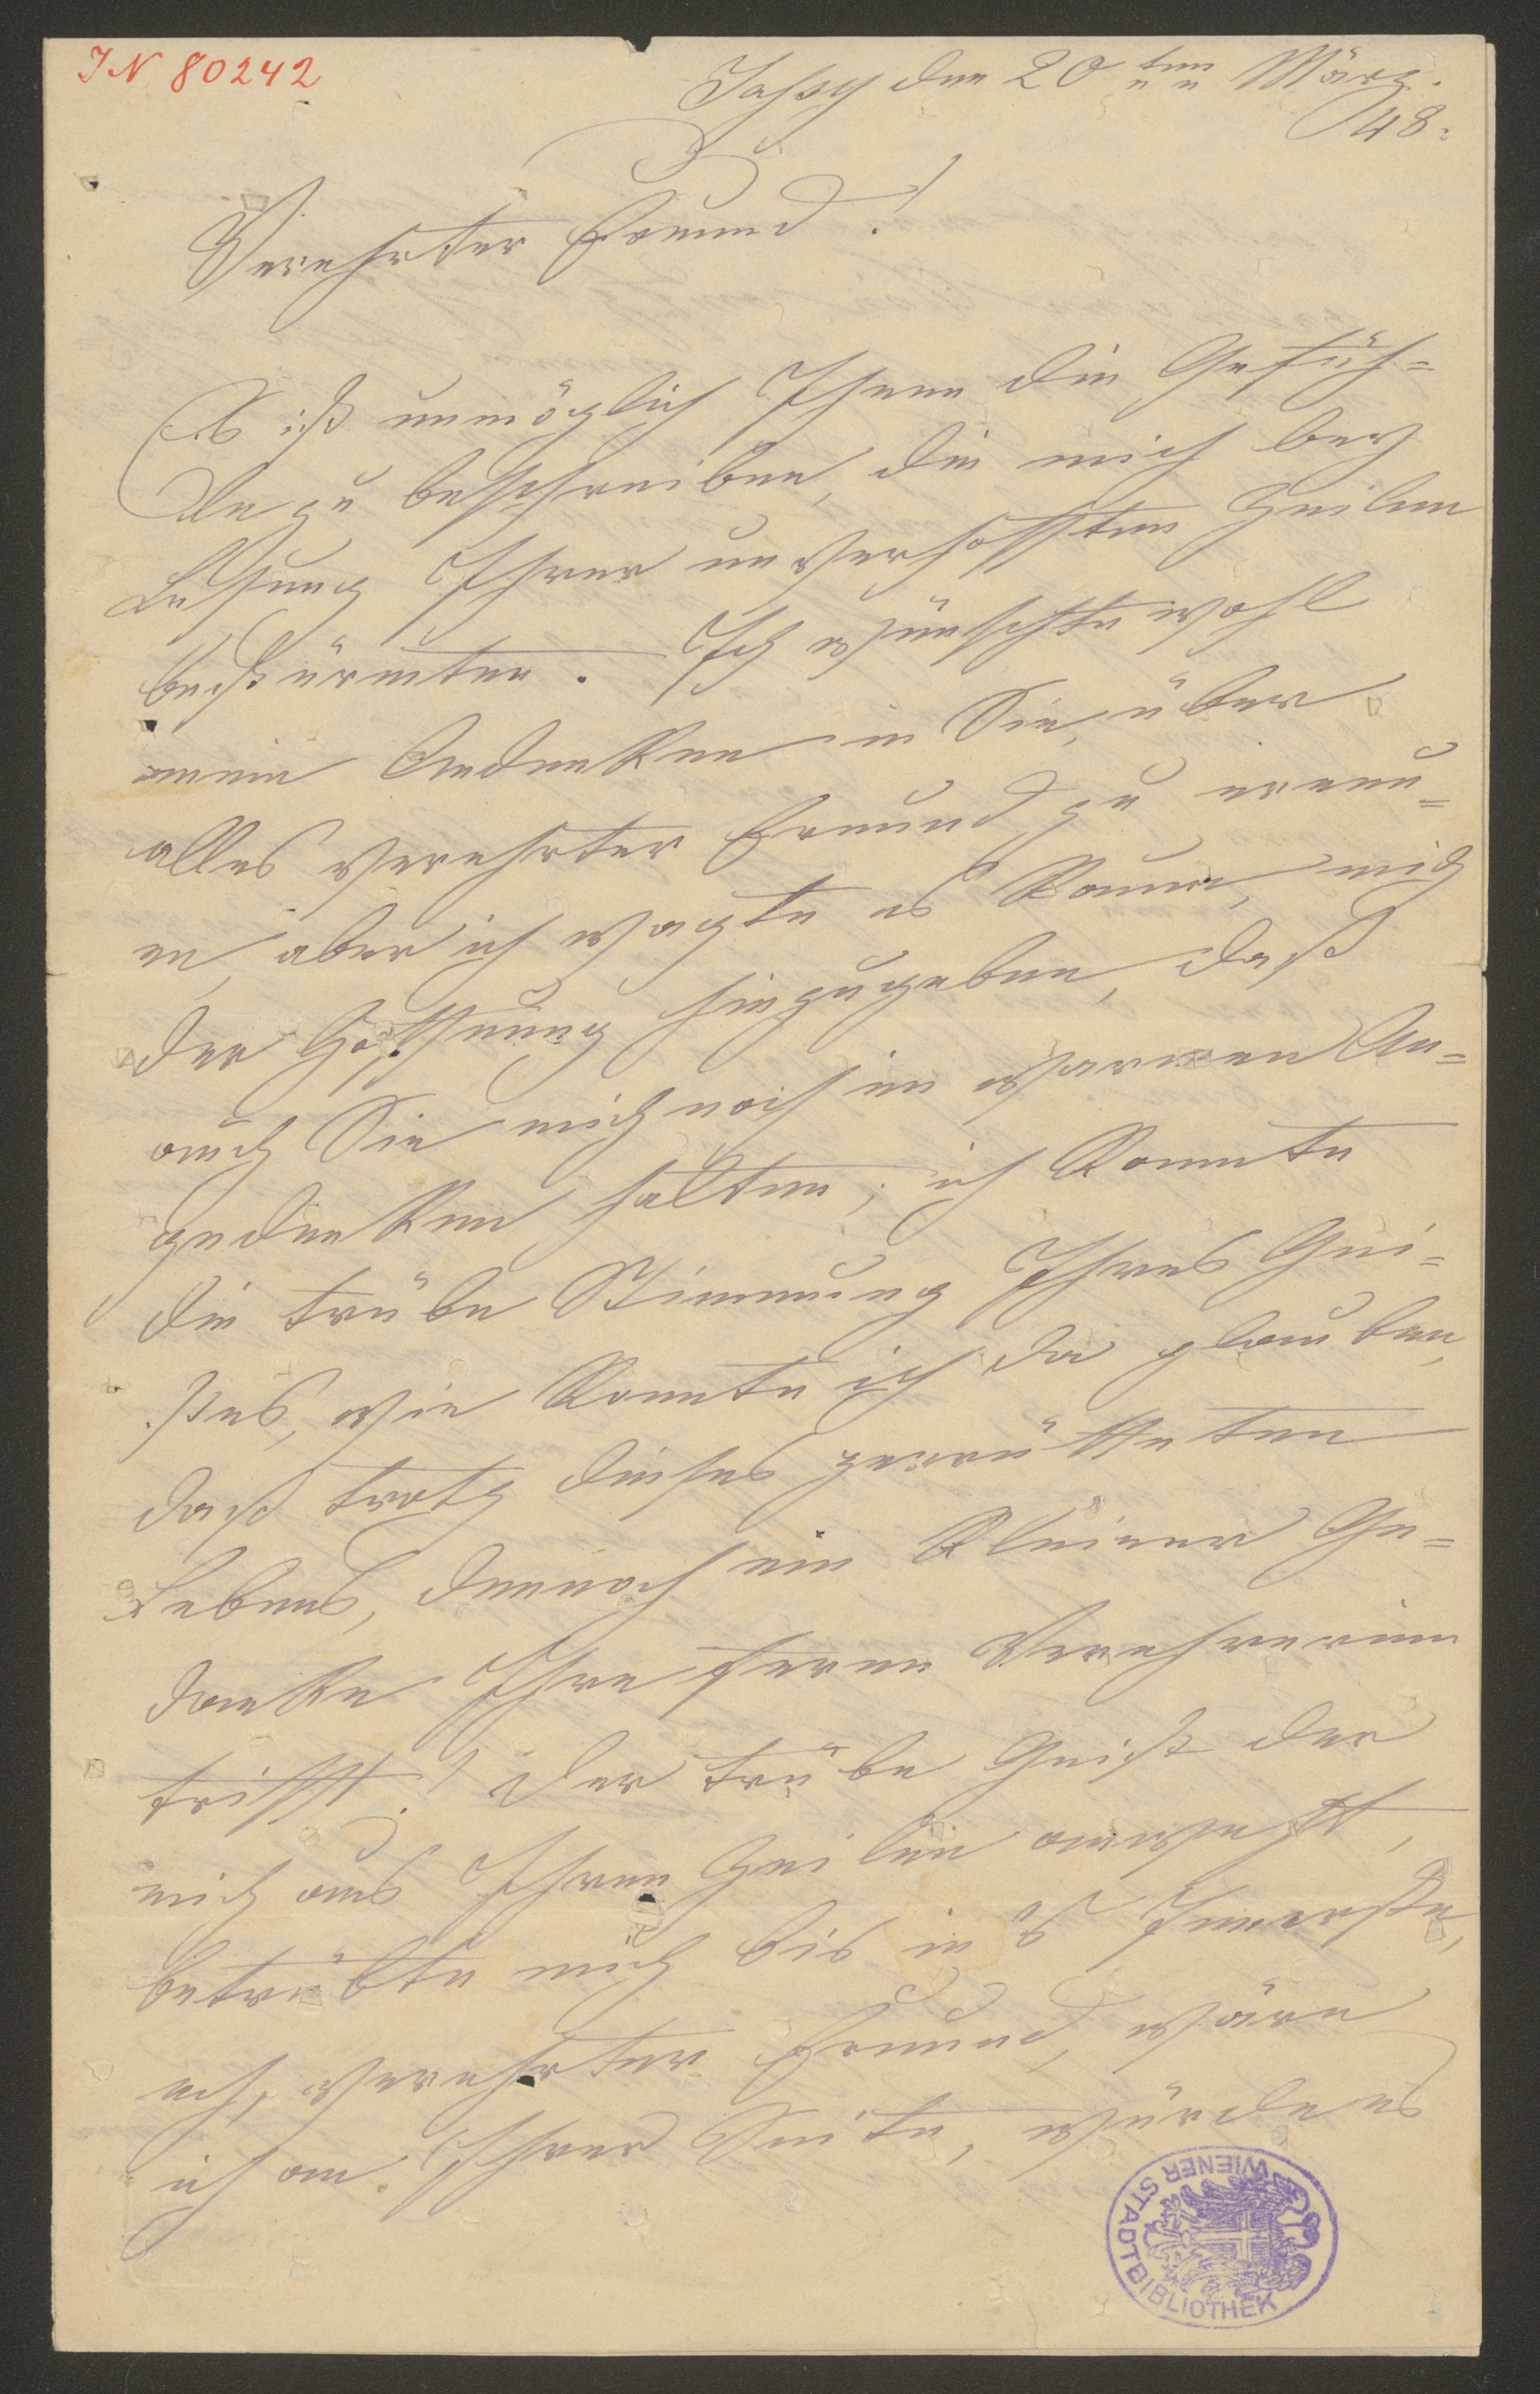 IN 80242
Jassy den 20ten März.
48.
Verehrter Freund!
Es ist unmöglich Ihnen die Gefüh=
le zu beschreiben, die mich bey
Lesung Ihrer unverhofften Zeilen
bestürmten. Ich wünschte wohl
mein Andenken in Sie, über
alles verehrter Freund zu erneu=
en, aber ich wagte es kaum, mich
der Hoffnung hinzugeben, daß
auch Sie mich noch im warmen An=
gedenken halten; ich kannte
die trübe Stimmung Ihres Gei=
stes, wie konnte ich da glauben,
daß trotz dieses zerrütteten
Lebens, dennoch ein kleiner Ge=
danke Ihre ferne Verehrerinn
trifft! Der trübe Geist der
mich aus Ihren Zeilen anweht,
betrübte mich bis in's Innerste,
ach, verehrter Freund, wäre
ich an Ihrer Seite, würde es
WIENER STADTBIBLIOTHEK